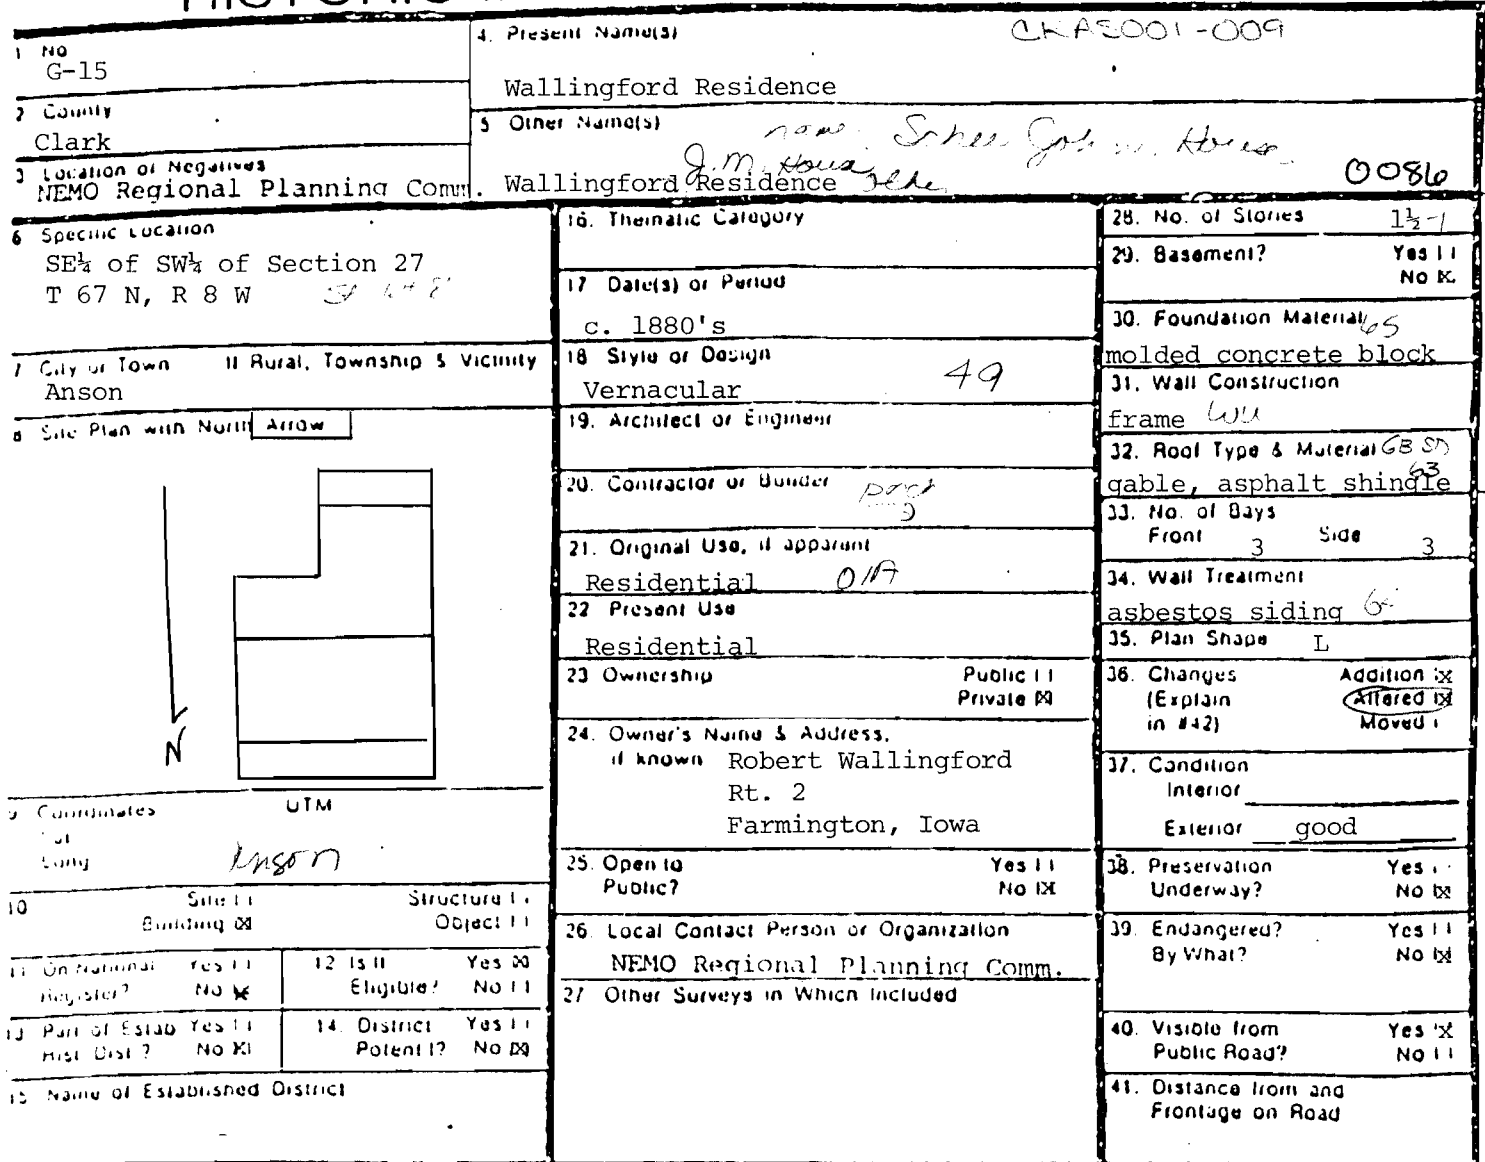 1 No
G-15
4. Present Name(s)
CKAS001-009
Wallingford Residence
2 County
Clark
5 Other Name(s)
J.M. House
Wallingford Residence
0086
3 Location of Negatives
NEMO Regional Planning Comm.
6 Specific Location
SE¼ of SW¼ of Section 27
T 67 N, R 8 W
7 City or Town If Rural, Township & Vicinity
Anson
8 Site Plan with North Arrow
N
9 Coordinates UTM
Lat
Long
Anson
10 Site [ ] Structure [ ]
Building [X] Object [ ]
11 On National Yes [ ]
Register? No [X]
12 Is It Yes [X]
Eligible? No [ ]
13 Part of Estab Yes [ ]
Hist. Dist.? No [X]
14. District Yes [ ]
Potent'l? No [X]
15 Name of Established District
16. Thematic Category
17 Date(s) or Period
c. 1880's
18 Style or Design
Vernacular 49
19. Architect or Engineer
20. Contractor or Builder
21. Original Use, if apparent
Residential O1A
22 Present Use
Residential
23 Ownership Public [ ]
Private [X]
24. Owner's Name & Address,
if known Robert Wallingford
Rt. 2
Farmington, Iowa
25. Open to Yes [ ]
Public? No [X]
26. Local Contact Person or Organization
NEMO Regional Planning Comm.
27 Other Surveys in Which Included
28. No. of Stories 1½
29. Basement? Yes [ ]
No [X]
30. Foundation Material 65
molded concrete block
31. Wall Construction
frame WU
32. Roof Type & Material GB
63
gable, asphalt shingle
33. No. of Bays
Front 3 Side 3
34. Wall Treatment
asbestos siding
35. Plan Shape L
36. Changes Addition [X]
(Explain Altered [X]
in #42) Moved [ ]
37. Condition
Interior
Exterior good
38. Preservation Yes [ ]
Underway? No [X]
39. Endangered? Yes [ ]
By What? No [X]
40. Visible from Yes [X]
Public Road? No [ ]
41. Distance from and
Frontage on Road